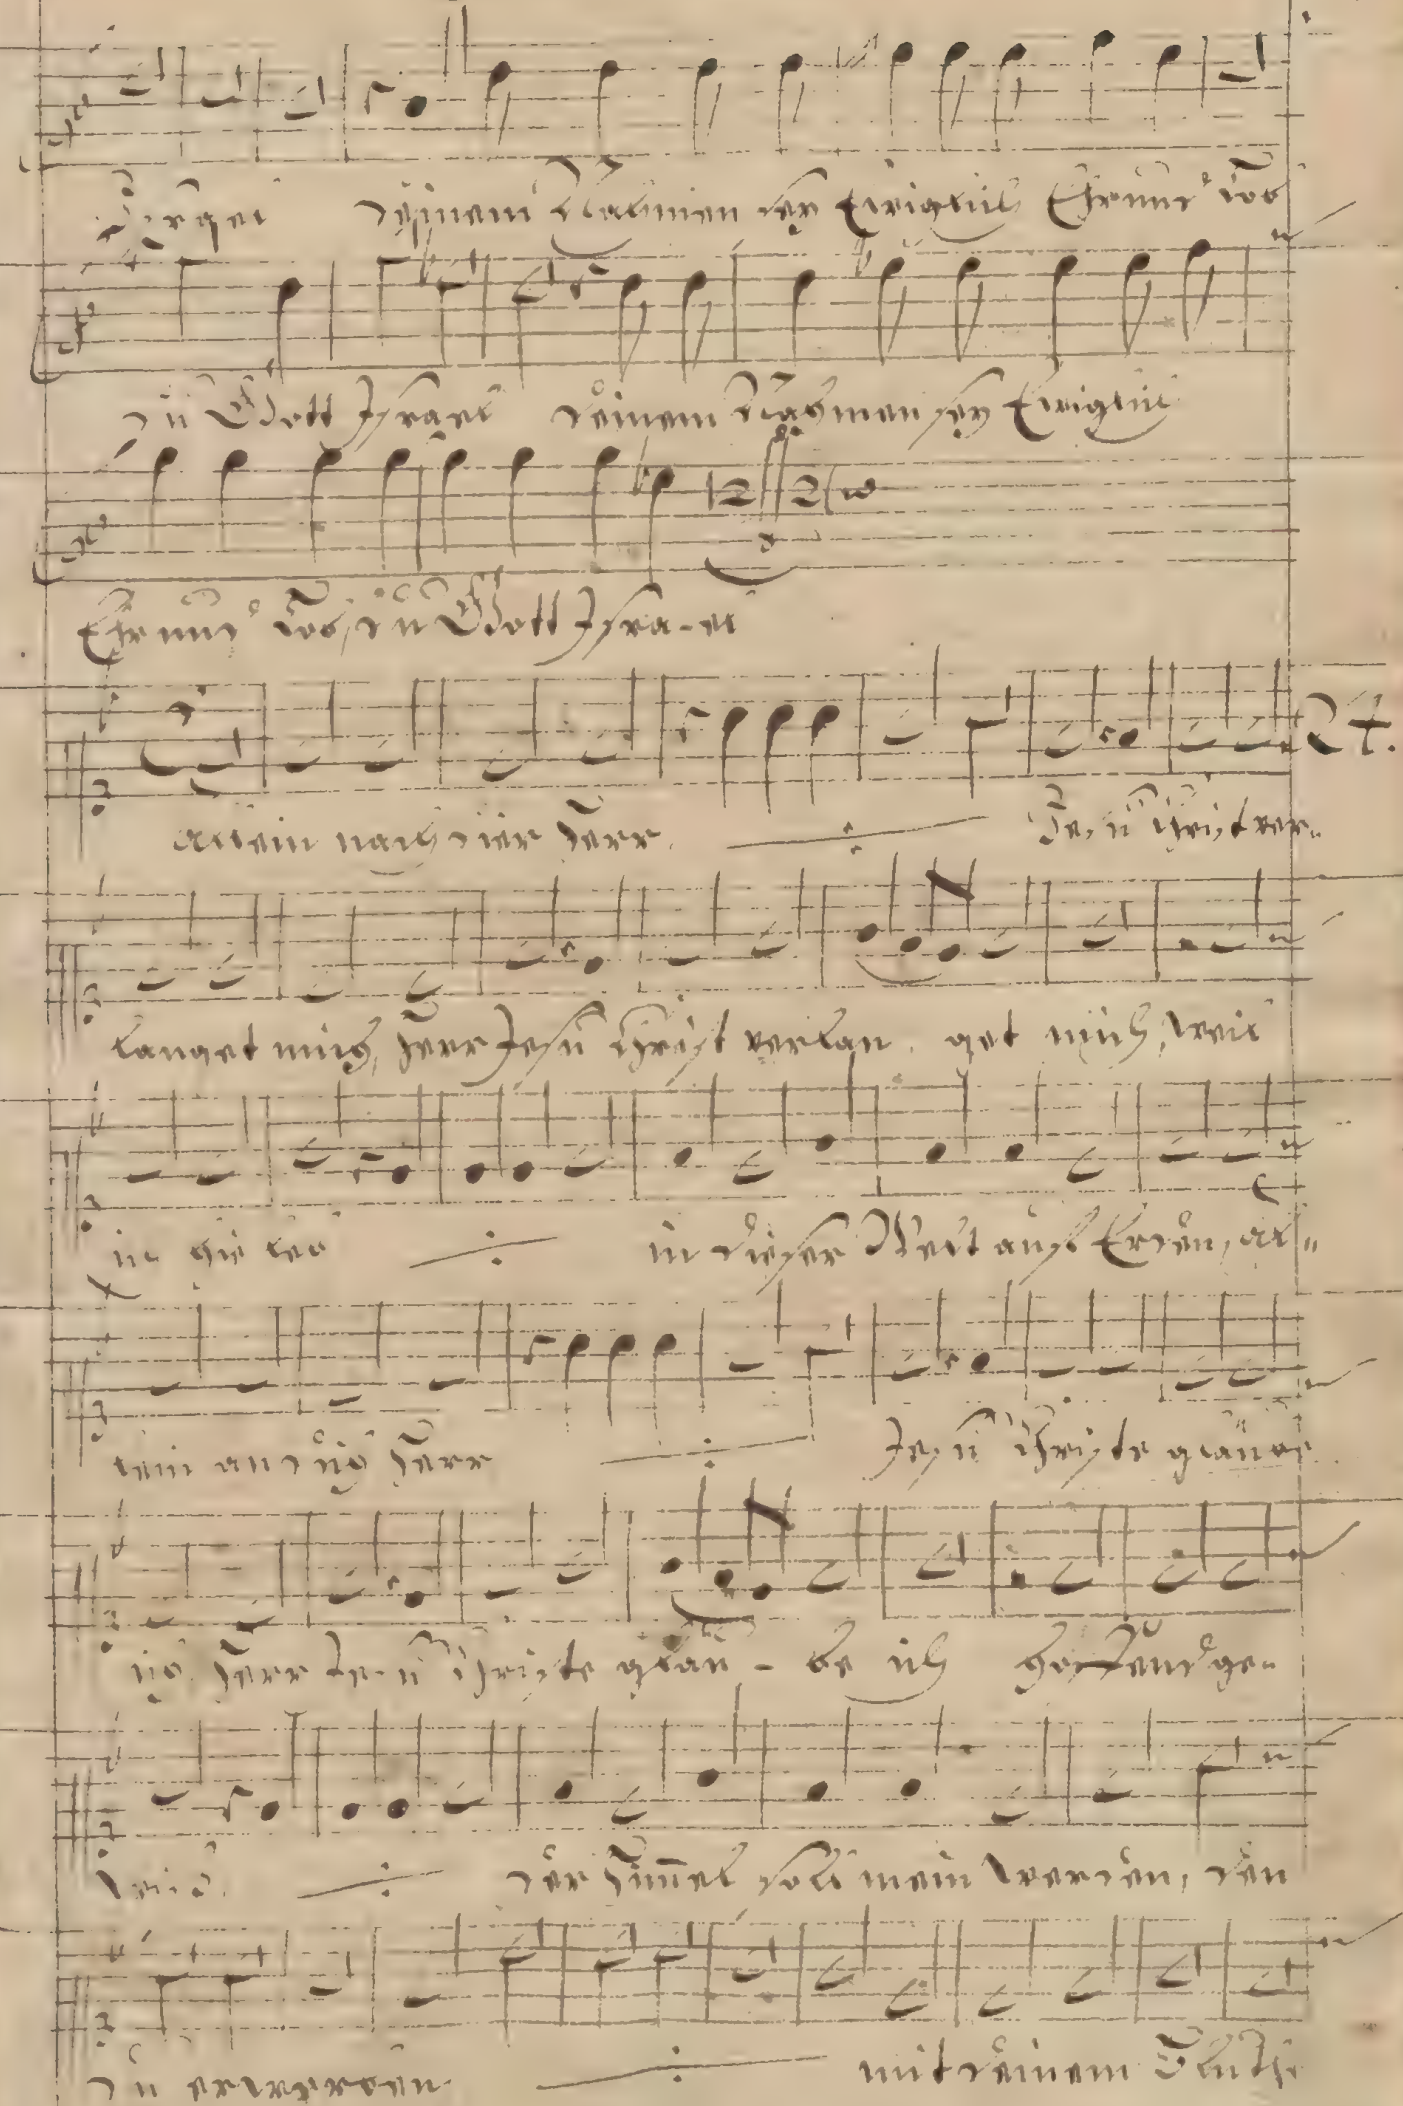 deinem Nahmen sey Ewiglich Ehr und Lob
du Gott Israel deinem Nahmen sey Ewiglich
Ehr und Lob, du Gott Isra-el
24.
allein nach dier Herr Jesu Christ ver-
langet mich, Herr Jesu Christ verlan- get mich, weil
in dieser Welt auf Erden, al-
lein an dich Herr Jesu Christe glaube
ich Herr Jesu Christe glau - be ich
der Him̄el soll mein werden, den
du erworben mit deinem Bluth